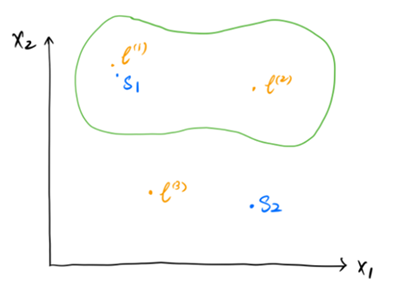 x₂
l⁽¹⁾
S₁
l⁽²⁾
l⁽³⁾
S₂
x₁